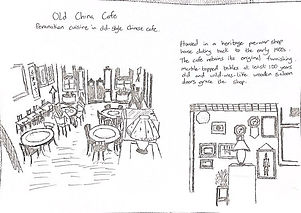 Old China Cafe
Peranakan cuisine in old-style Chinese cafe.
Housed in a heritage pre-war shop
house dating back to the early 1920s.
The cafe retains its original furnishing
marble-topped tables at least 100 years
old and wild-west-like wooden saloon
doors grace the shop.